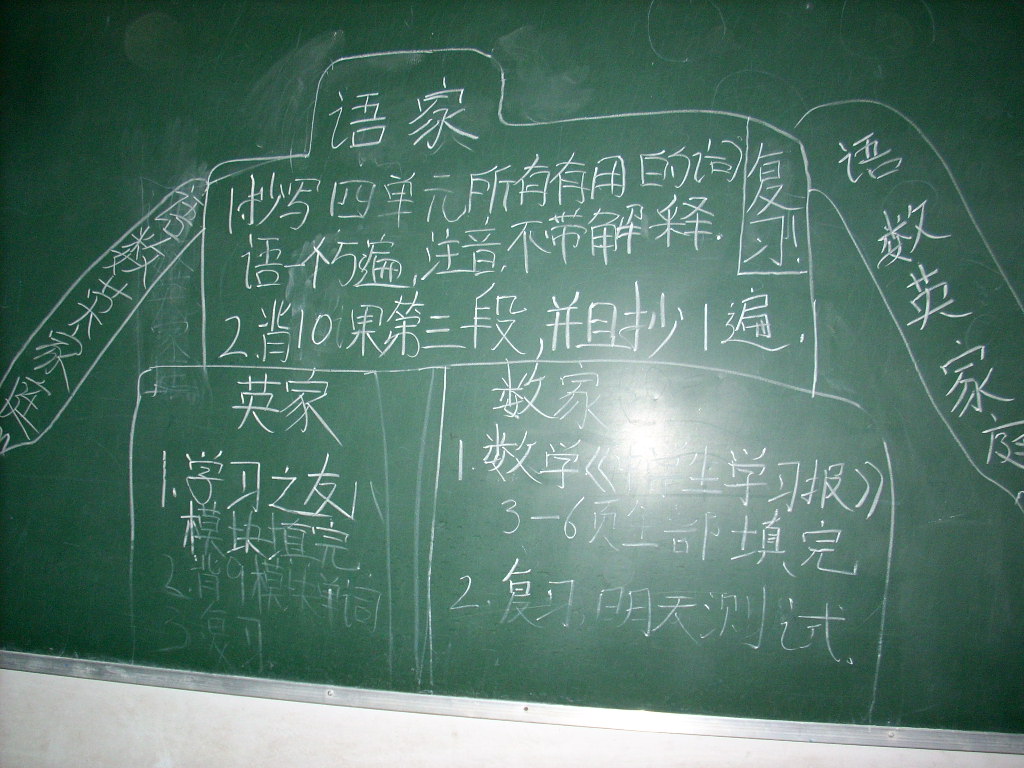 语家
1.抄写四单元所有有用的词
语一巧遍,注音,不带解释.
复习!
2.背10课第三段,并且抄1遍.
英家
1.学习之友八
模块填完
2.背9模块单词
3.复习
数家
1.数学《学生学习报》
3-6页全部填完
2.复习,明天测试.
语数英家庭
家庭